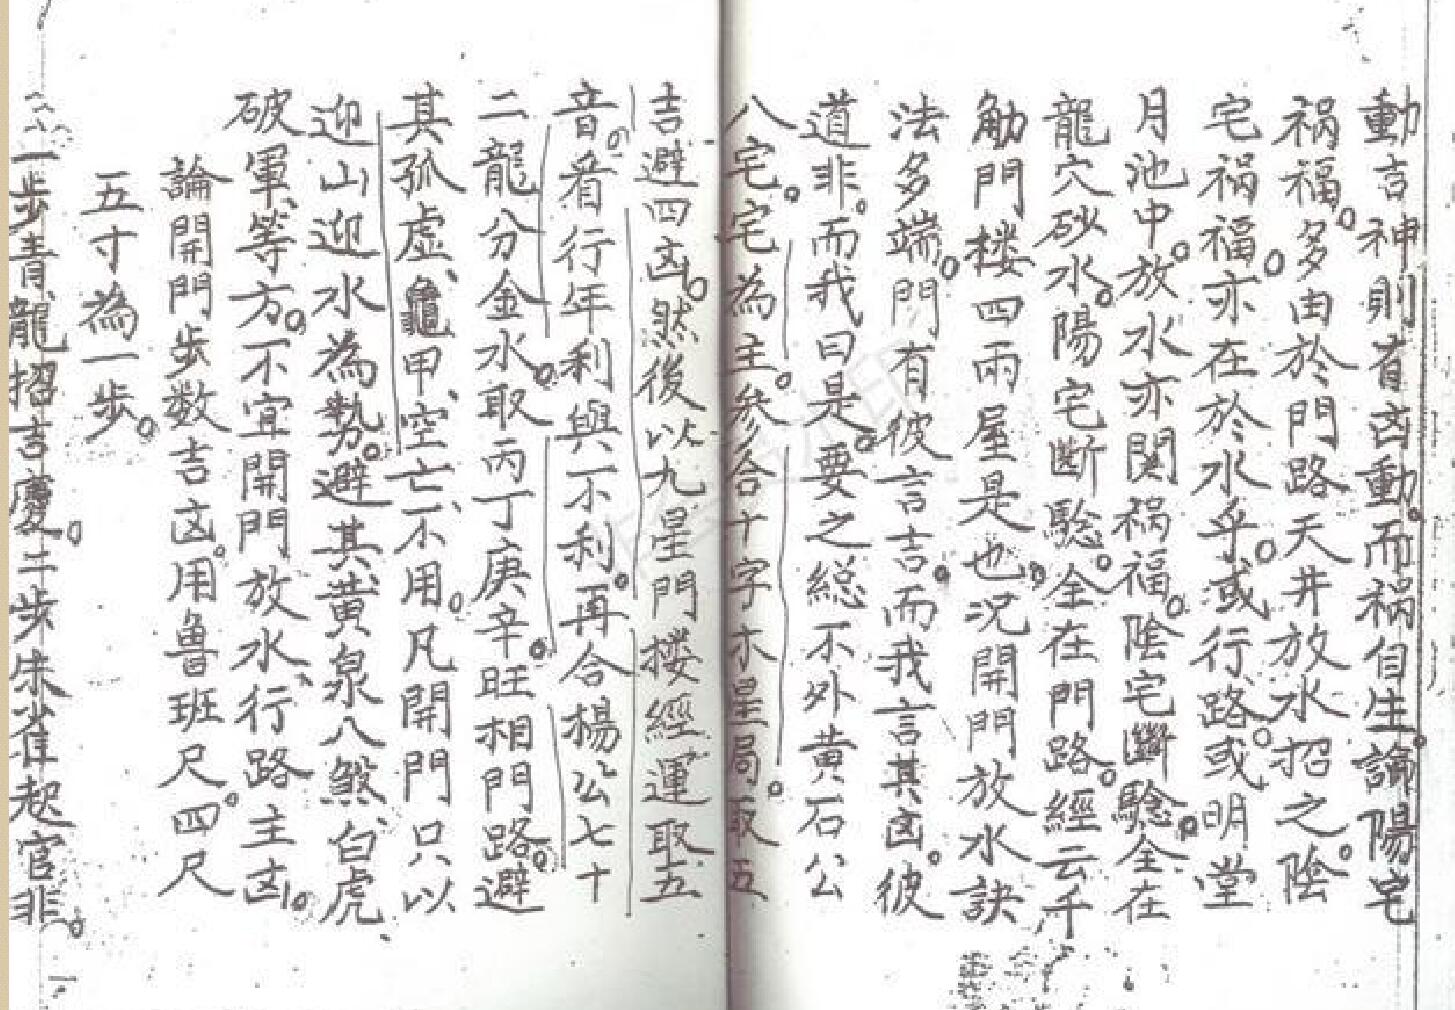 動吉神則首凶動。而祸自生。論陽宅
祸福。多由於門路天井放水招之。陰
宅祸福。亦在於水乎。或行路。或明堂
月池中。放水亦関祸福。陰宅断騐。全在
龍穴砂水。陽宅断騐。全在門路。經云千
觔門楼四両屋是也。况開門放水訣
法多端。門有彼言吉。而我言其凶。彼
道非。而我曰是。要之総不外黄石公
八宅。宅為主。参合十字木星局。取五
吉避四凶。然後以九星門楼經運取五
音。看行年利與不利。再合楊公七十
二龍分金水。取丙丁庚辛。旺相門路。避
其孤虚、龜甲、空亡、不用。凡開門只以
迎山迎水為勢。避其黄泉八煞、白虎、
破軍、等方。不宜開門放水、行路主凶。
論開門步数吉凶。用魯班尺。四尺
五寸為一步。
一步青龍招吉慶。二步朱雀起官非。